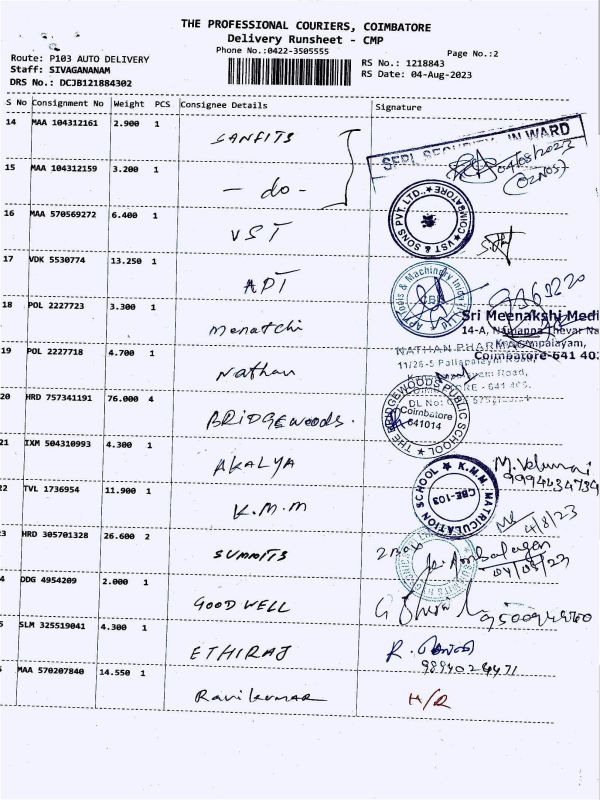 THE PROFESSIONAL COURIERS, COIMBATORE
Delivery Runsheet - CMP
Phone No.:0422-3505555
Page No.:2
Route: P103 AUTO DELIVERY
Staff: SIVAGANANAM
DRS No.: DCJB121884302
RS No.: 1218843
RS Date: 04-Aug-2023
S No Consignment No Weight PCS Consignee Details Signature
14 MAA 104312161 2.900 1 SANFITS
SFPL SECURITY INWARD
04/08/2023
15 MAA 104312159 3.200 1 - do -
16 MAA 570569272 6.400 1 VST
VST & SONS PVT. LTD. COIMBATORE
17 VDK 5530774 13.250 1 APT
18 POL 2227723 3.300 1 Menatchi
Sri Meenakshi Medi
Coimbatore-641 40
19 POL 2227718 4.700 1 Nathan
NATHAN PHARMA
20 HRD 757341191 76.000 4 BRIDGEWOODS.
THE BRIDGEWOODS PUBLIC SCHOOL
Coimbatore
641014
21 IXM 504310993 4.300 1 AKALYA
22 TVL 1736954 11.900 1 K.M.M
K.M.M. MATRICULATION SCHOOL
CBE-103
4/8/23
3 HRD 305701328 26.600 2 SUMMITS
2 Box
04/08/23
4 DDG 4954209 2.000 1 GOOD WELL
5 SLM 325519041 4.300 1 ETHIRAJ
MAA 570207840 14.550 1 Ravikumar H/R